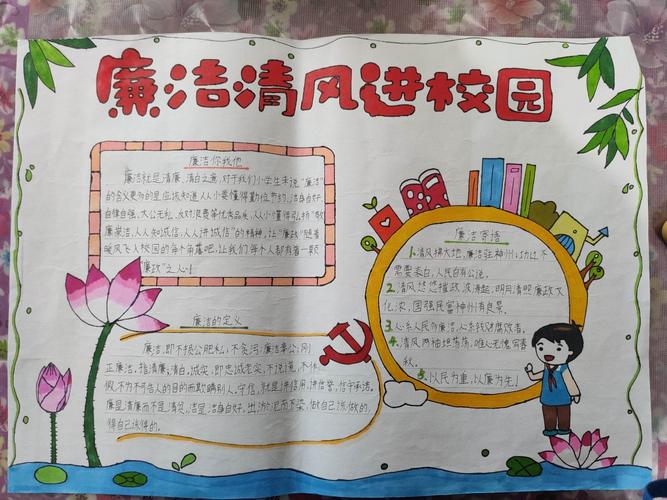 廉洁清风进校园
廉洁你我他
廉洁就是清廉、清白之意,对于我们小学生来说"廉洁"
的含义更多的是应该知道从小要懂得勤俭节约、洁身自好、
自律自强、大公无私、反对浪费等优秀品质,从小懂得弘扬"敬
廉崇洁、人人知诚信、人人讲诚信"的精神,让"廉政"随着
暖风飞入校园的每个角落吧,让我们每个人都有着一颗
"廉政"之心!
廉洁的定义
廉洁,即不损公肥私,不贪污;廉洁奉公;刚
正廉洁。指清廉;清白。诚实,即忠诚老实,不说谎,不作
假,不为不可告人的目的而欺瞒别人。守信,就是讲信用,讲信誉,信守承诺。
廉是清廉而不是清贫,洁是洁身自好,出淤泥而不染,做自己该做的,
得自己该得的。
廉洁寄语
1.清风拂大地,廉洁驻神州;功过不
需表白,人民自有公说。
2 清风悠悠摧政浪涛起;明月清照廉政文
化浓,国强民富神州有良景。
3.心系人民为廉洁,心系钱财腐败者。
4.清风两袖坦荡荡,唯心无愧闯春
秋。
5.以民为重,以廉为先!